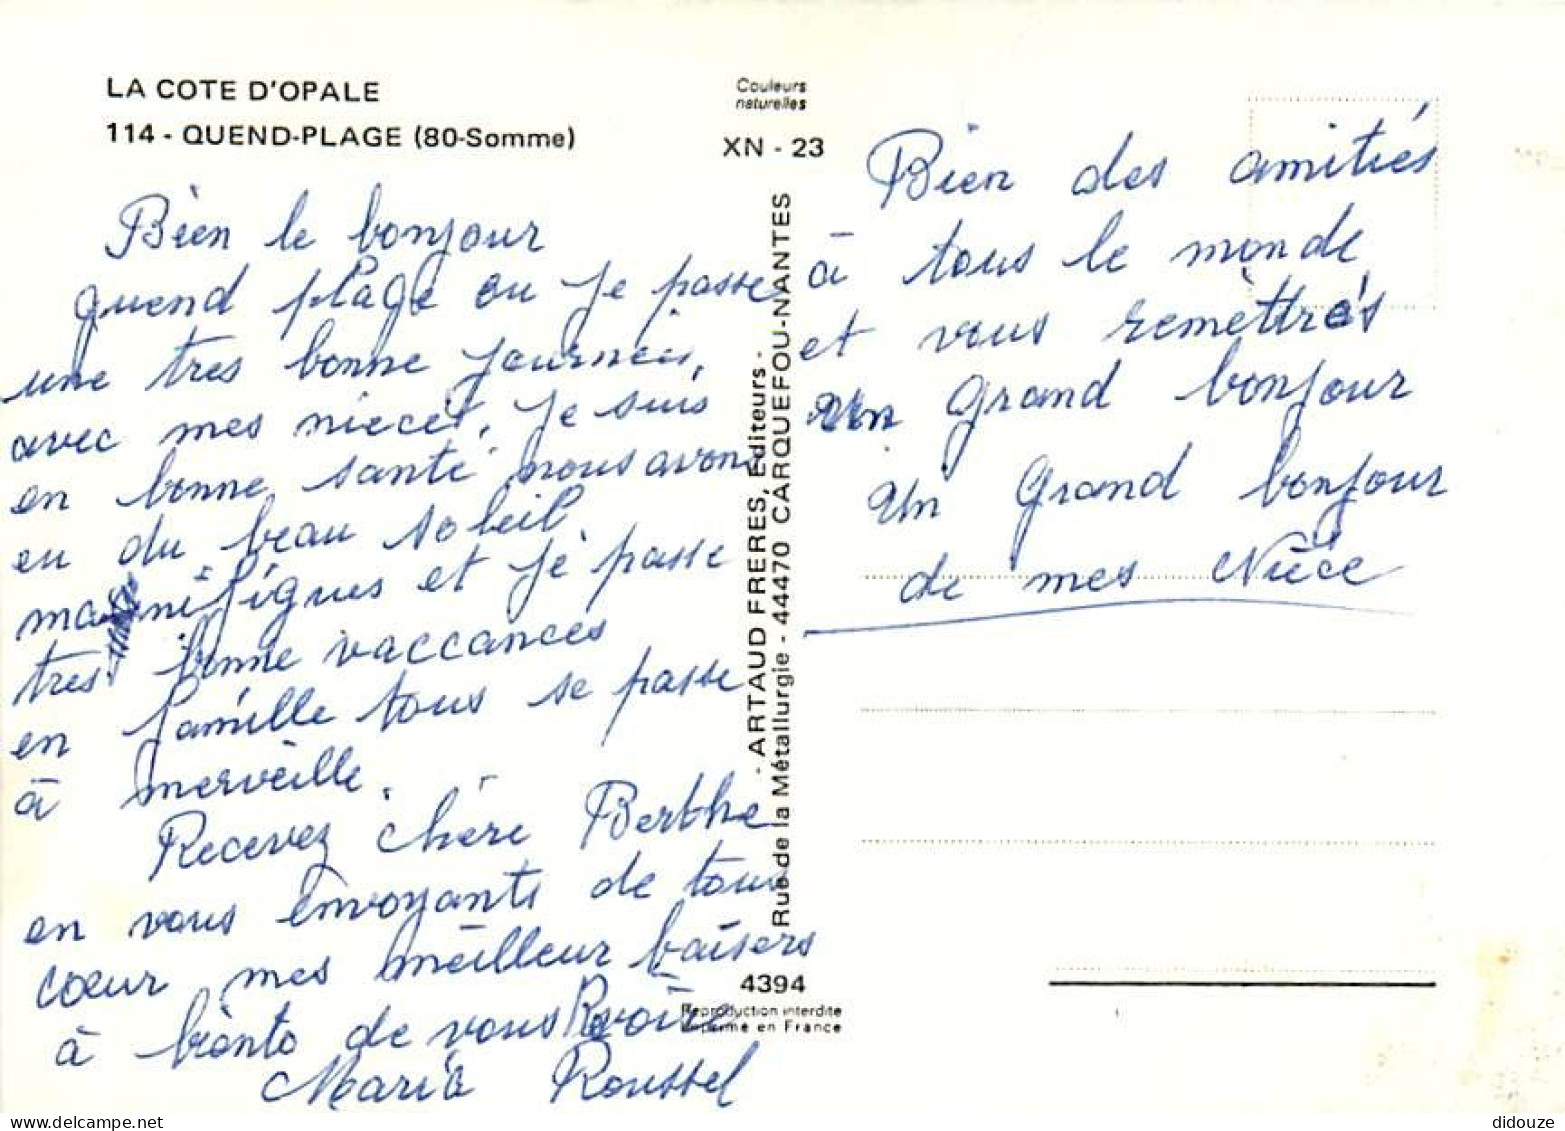 LA COTE D'OPALE
114 - QUEND-PLAGE (80-Somme)
Bien le bonjour
quend plage ou je passe
une tres bonne journeeis,
avec mes nieces, je suis
en bonne santé nous avons
eu du beau soleil
manifigues et jé passe
tres bonne vaccances
en famille tous se passe
à merveille.
Recevez chère Berthe
en vous envoyants de tous
cœur mes meilleur baisers
à biento de vous Revoire
Maria Roussel
Couleurs
naturelles
XN - 23
- ARTAUD FRERES, Editeurs -
Rue de la Métallurgie - 44470 CARQUEFOU-NANTES
4394
Reproduction interdite
Imprimé en France
Bien des amitiés
à tous le monde
et vous remèttrés
un grand bonjour
un grand bonjour
de mes Nièce
didouze